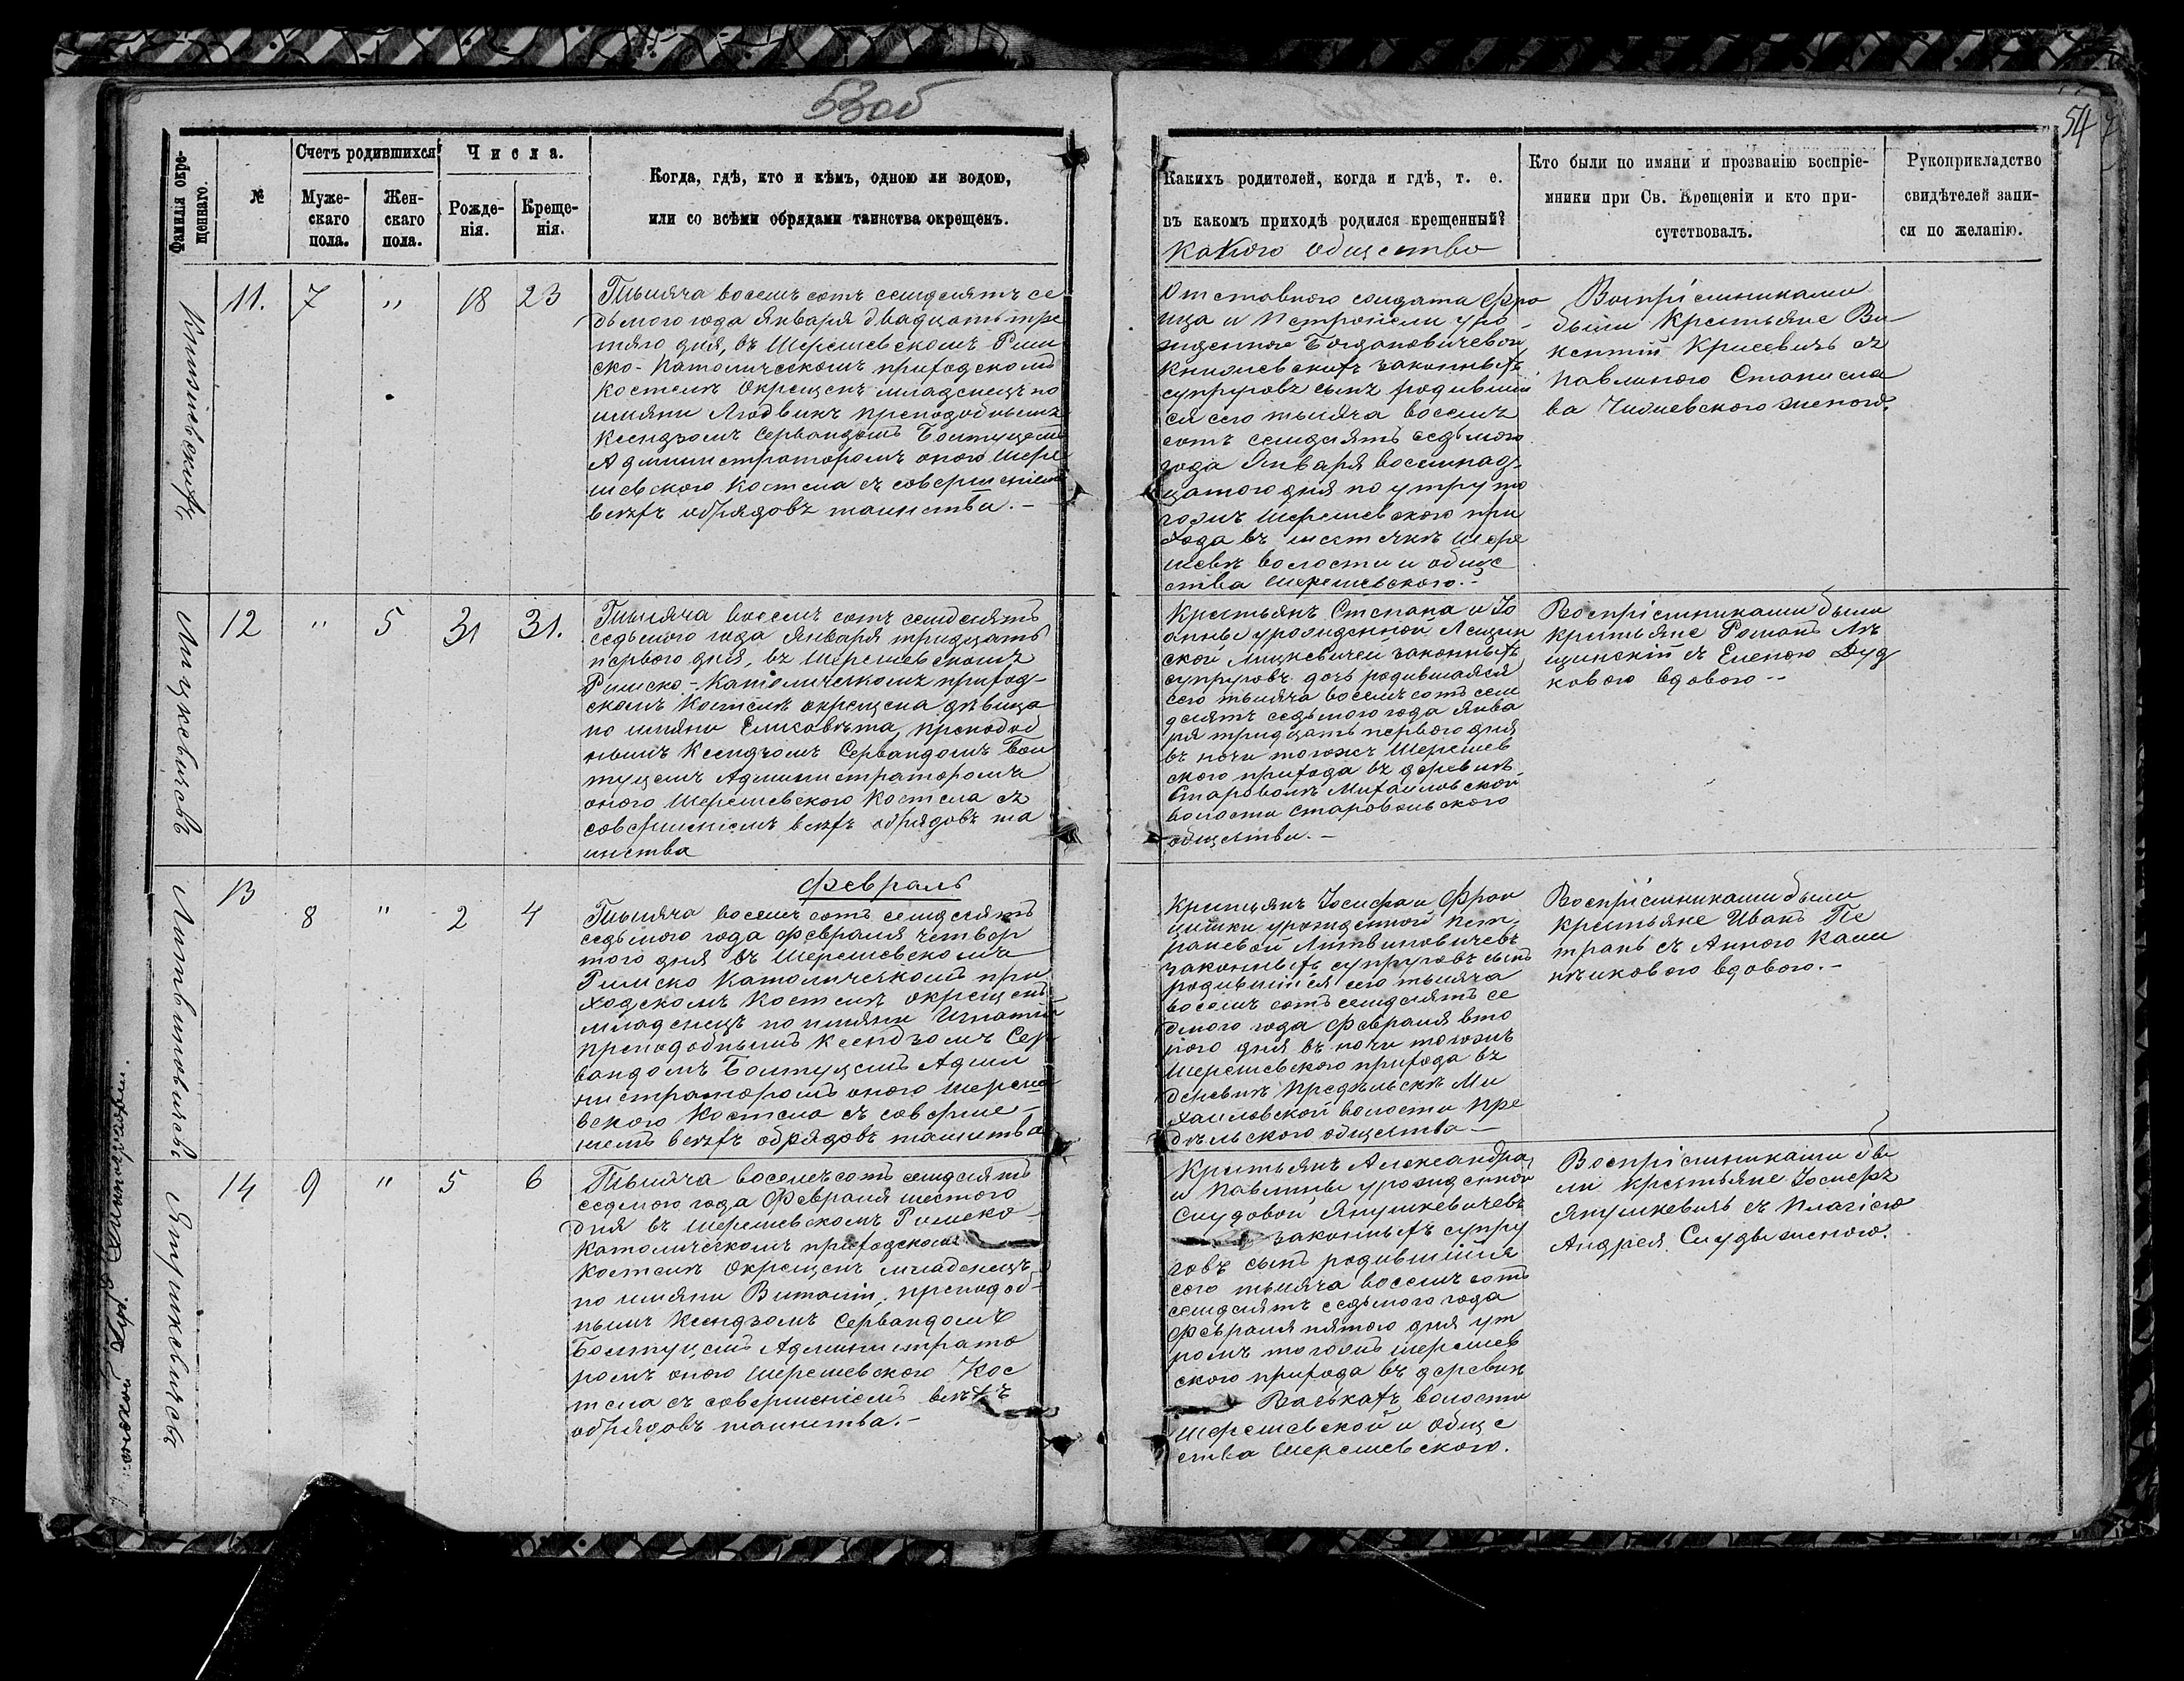 53об
54
Фамилія окре-
щеннаго.
№
Счетъ родившихся
Муже-
скаго
пола.
Жен-
скаго
пола.
Числа.
Рожде-
нія.
Креще-
нія.
Когда, гдѣ, кто и кѣмъ, одною ли водою,
или со всѣми обрядами таинства окрещенъ.
Какихъ родителей, когда и гдѣ, т. е.
въ какомъ приходѣ родился крещенный?
какого общество
Кто были по имяни и прозванію воспріе-
мники при Св. Крещеніи и кто при-
сутствовалъ.
Рукоприкладство
свидѣтелей запи-
си по желанію.
11. 7 " 18 23
Тысяча восемь сотъ семдесятъ се
дьмого года Января двадцать тре
тяго дня, въ Шерешевскомъ Рим
ско-Католическомъ приходскомъ
Костелѣ окрещенъ младенецъ по
имяни Людвикъ преподобнымъ
Ксендзомъ Сервандомъ Болтуцемъ
Администраторомъ оного Шере
шевского Костела съ совершеніемъ
всѣхъ обрядовъ таинства.-
Отставного солдата Фра
нца и Петронели уро-
жденной Богдановичевой
законныхъ
супруговъ сынъ родившій
ся сего тысяча восемь
сотъ семдесятъ седьмого
года Января восемнад-
цатого дня по утру то
гожъ Шерешевского при
хода въ мѣстечкѣ Шере
шевѣ волости и обще
ства Шерешевского.-
Воспріемниками
были Крестьяне Ви
кентій Крисевичъ съ
Павлиною Станисла
ва женою.
Лицкевичевъ
12 " 5 31 31.
Тысяча восемь сотъ семдесятъ
седьмого года Января тридцать
первого дня, въ Шерешевскомъ
Римско-Католическомъ приход-
скомъ Костелѣ окрещена дѣвица
по имяни Елисавѣта, преподоб
нымъ Ксендзомъ Сервандомъ Бол
туцемъ Администраторомъ
оного Шерешевского Костела съ
совершеніемъ всѣхъ обрядовъ та
инства
Крестьянъ Степана и Іо
анны урожденной Лещин
ской Лицкевичей законныхъ
супруговъ дочь родившаяся
сего тысяча восемь сотъ сем
десятъ седьмого года Янва
ря тридцать первого дня
въ ночи тогожъ Шерешев
ского прихода въ деревнѣ
Староволѣ Михайловской
волости Старовольского
общества.-
Воспріемниками были
крестьяне Романъ Лѣ
щинскій съ Еленою Дуд
ковою вдовою--
Литвиновичевъ
Февраль
13 8 " 2 4
Тысяча восемь сотъ семдесятъ
седьмого года Февраля четвер
того дня въ Шерешевскомъ
Римско Католическомъ при
ходскомъ Костелѣ окрещенъ
младенецъ по имяни Игнатій
преподобнымъ Ксендзомъ Сер
вандомъ Болтуцемъ Адми
нистраторомъ оного Шереше
вского Костела съ соверше-
ніемъ всѣхъ обрядовъ таинства
Крестьянъ Іосифа и Фран
цишки урожденной Пет-
раневой Литвиновичевъ
законныхъ супруговъ сынъ
родившійся сего тысяча
восемь сотъ семдесятъ се
дмого года Февраля вто
рого дня въ ночи тогожъ
Шерешевского прихода въ
деревнѣ Предѣльскѣ Ми
хайловской волости Пре
дѣльского общества-
Воспріемниками были
крестьяне Иванъ Пе
транъ съ Анною
вдовою.-
Янушкевичевъ
14 9 " 5 6
Тысяча восемь сотъ семдесятъ
седмого года Февраля шестого
дня въ Шерешевскомъ Римско-
Католическомъ приходскомъ
Костелѣ окрещенъ младенецъ
по имяни Виталій, преподоб-
нымъ Ксендзомъ Сервандомъ
Болтуцемъ Администрато
ромъ оного Шерешевского Кос
тела съ совершеніемъ всѣхъ
обрядовъ таинства.-
Крестьянъ Александра
и Павлины урожденной
Слудовой Янушкевичевъ
законныхъ супру
говъ сынъ родившійся
сего тысяча восемь сотъ
семдесятъ седьмого года
Февраля пятого дня ут
ромъ тогожъ Шерешев
ского прихода въ деревнѣ
Васькахъ волости
Шерешевской и обще
ства Шерешевского.
Воспріемниками бы
ли крестьяне Іосифъ
Янушкевичъ съ
Андрея Слуды женою.